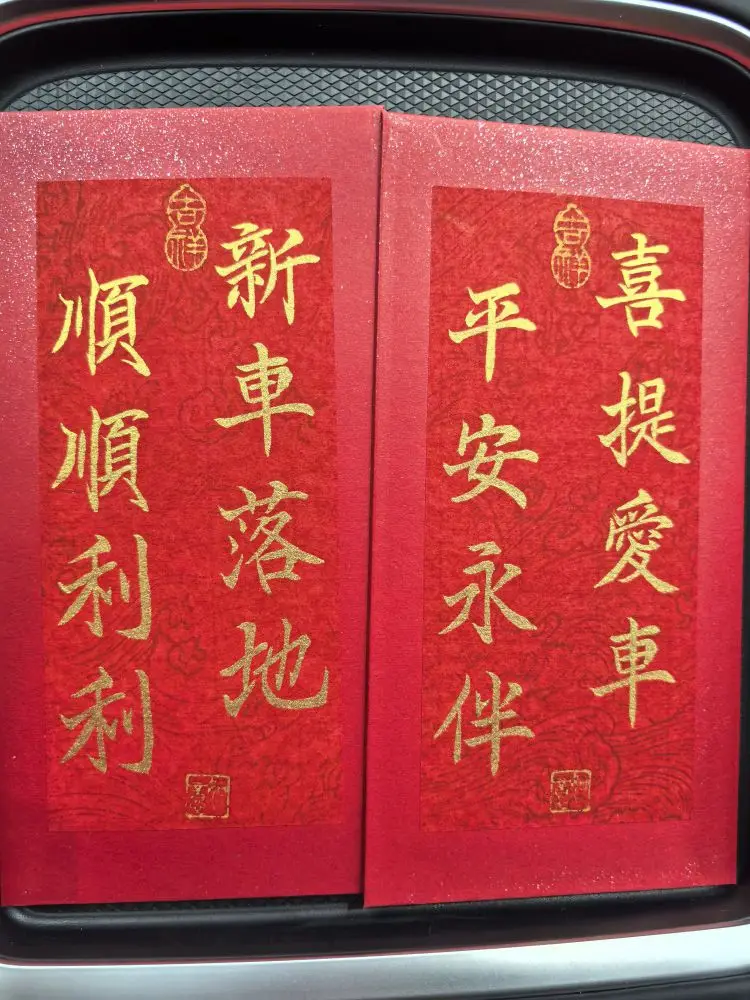 吉祥
喜提愛車
平安永伴
吉祥
新車落地
順順利利